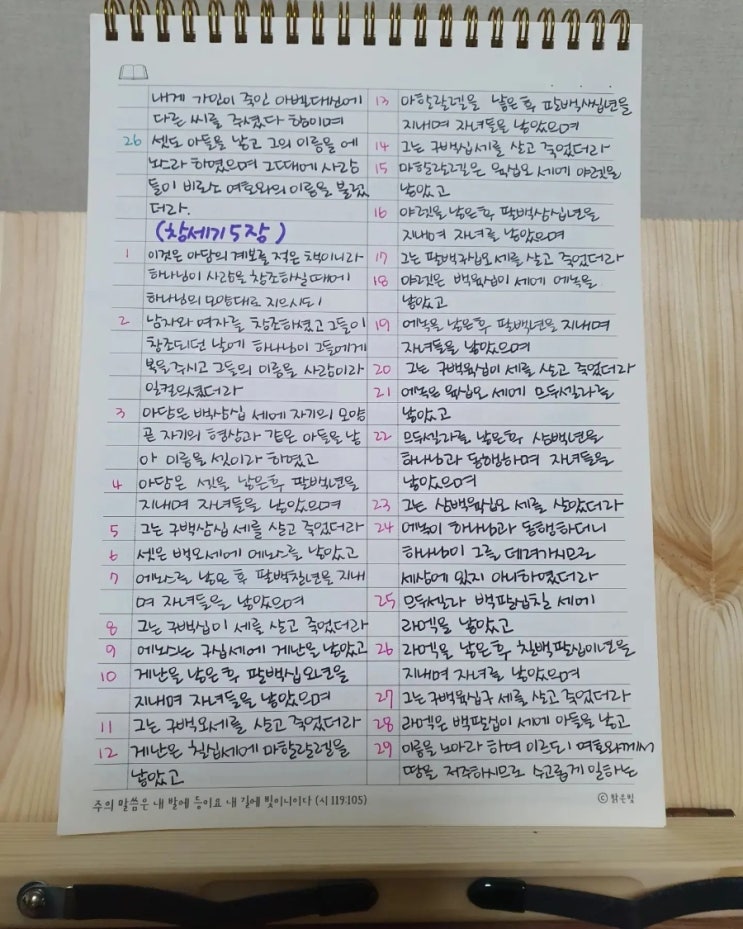 내게 가인이 죽인 아벨대신에
다른 씨를 주셨다 함이며
26 셋도 아들을 낳고 그의 이름을 에
노스라 하였으며 그때에 사람
들이 비로소 여호와의 이름을 불렀
더라.
(창세기 5장)
1 이것은 아담의 계보를 적은 책이니라
하나님이 사람을 창조하실때에
하나님의 모양대로 지으시되
2 남자와 여자를 창조하셨고 그들이
창조되던 날에 하나님이 그들에게
복을주시고 그들의 이름을 사람이라
일컬으셨더라
3 아담은 백삼십 세에 자기의 모양
곧 자기의 형상과 같은 아들을 낳
아 이름을 셋이라 하였고
4 아담은 셋을 낳은후 팔백년을
지내며 자녀들을 낳았으며
5 그는 구백삼십 세를 살고 죽었더라
6 셋은 백오세에 에노스를 낳았고
7 에노스를 낳은 후 팔백칠년을 지내
며 자녀들을 낳았으며
8 그는 구백십이 세를 살고 죽었더라
9 에노스는 구십세에 게난을 낳았고
10 게난을 낳은 후 팔백십오년을
지내며 자녀들을 낳았으며
11 그는 구백오세를 살고 죽었더라
12 게난은 칠십세에 마할랄렐을
낳았고
13 마할랄렐을 낳은 후 팔백사십년을
지내며 자녀들을 낳았으며
14 그는 구백십세를 살고 죽었더라
15 마할랄렐은 육십오 세에 야렛을
낳았고
16 야렛을 낳은후 팔백삼십년을
지내며 자녀를 낳았으며
17 그는 팔백구십오 세를 살고 죽었더라
18 야렛은 백육십이 세에 에녹을
낳았고
19 에녹을 낳은 후 팔백년을 지내며
자녀들을 낳았으며
20 그는 구백육십이 세를 살고 죽었더라
21 에녹은 육십오 세에 므두셀라를
낳았고
22 므두셀라를 낳은후 삼백년을
하나님과 동행하며 자녀들을
낳았으며
23 그는 삼백육십오 세를 살았더라
24 에녹이 하나님과 동행하더니
하나님이 그를 데려가시므로
세상에 있지 아니하였더라
25 므두셀라 백팔십칠 세에
라멕을 낳았고
26 라멕을 낳은 후 칠백팔십이년을
지내며 자녀를 낳았으며
27 그는 구백육십구 세를 살고 죽었더라
28 라멕은 백팔십이 세에 아들을 낳고
29 이름을 노아라 하며 이르되 여호와께서
땅을 저주하시므로 수고롭게 일하는
주의 말씀은 내 발에 등이요 내 길에 빛이니이다 (시 119:105)
ⓒ 맑은빛